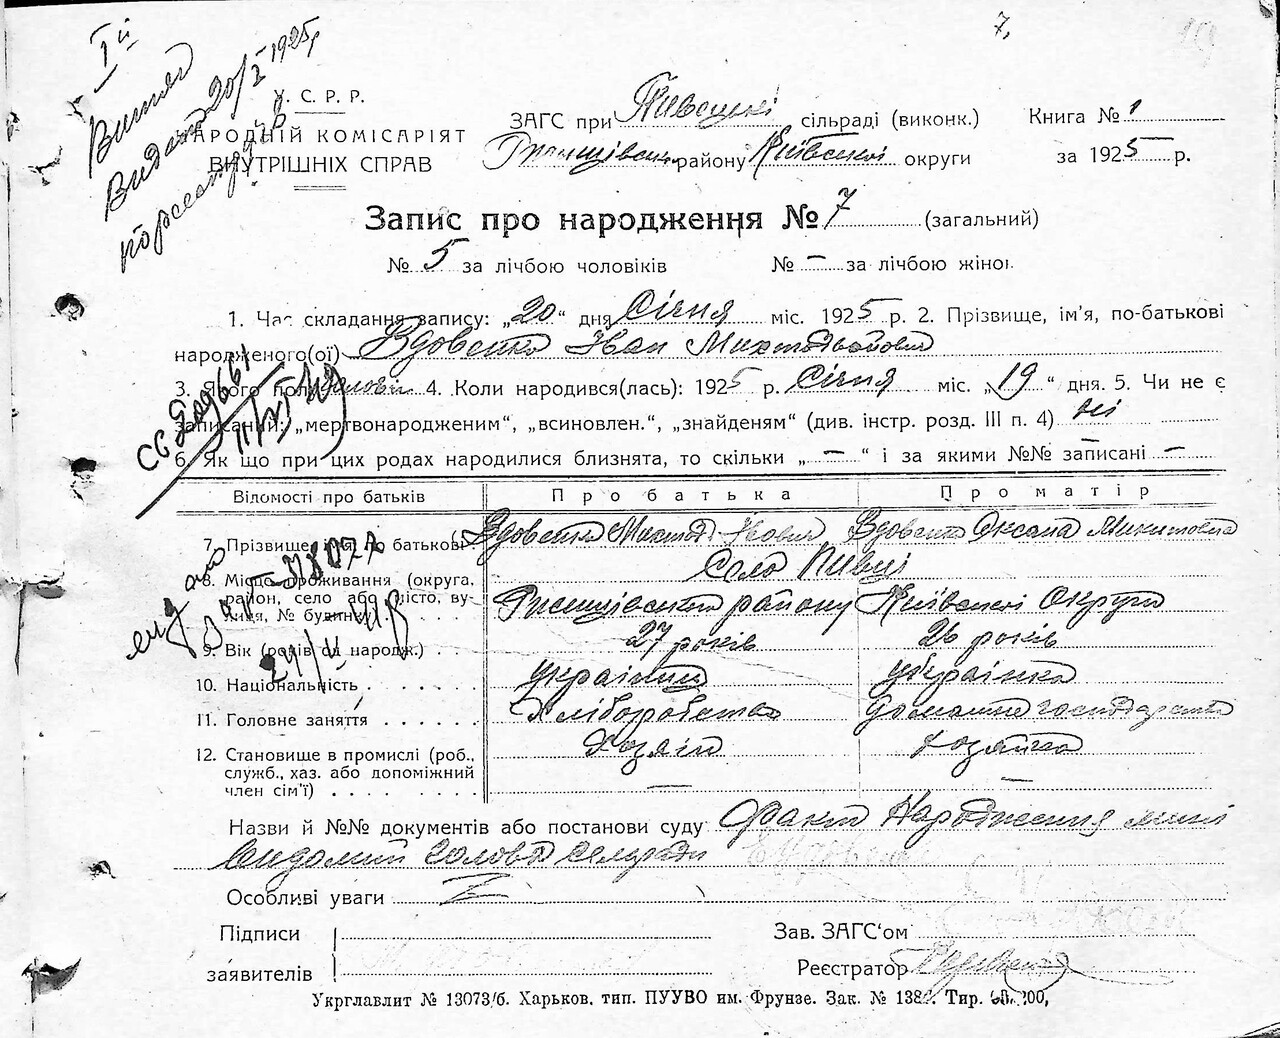 7,
І й
Витяг
Видано 20/І 1925р
У. С. Р. Р.
НАРОДНІЙ КОМІСАРІЯТ
ВНУТРІШНІХ СПРАВ
ЗАГС при Пивецькі сільраді (виконк.) Книга № 1
району Київської округи за 1925 р.
Запис про народження № 7 (загальний)
№ 5 за лічбою чоловіків № — за лічбою жіно
1. Час складання запису: „20“ дня Січня міс. 1925 р. 2. Прізвище, ім'я, по-батькові
народженого(ої) Вдовенко Іван
3. Якого пол чолові 4. Коли народився(лась): 1925 р. Січня міс. „19“ дня. 5. Чи не є
записаний: „мертвонародженим“, „всиновлен.“, „знайденям“ (див. інстр. розд. III п. 4) ні
6. Як що при цих родах народилися близнята, то скільки „—“ і за якими №№ записані —
Відомості про батьків Про батька Про матір
7. Прізвище, ім'я по батькові Вдовенко Вдовенко Оксана Микитовна
8. Місце проживання (округа, район, село або місто, вулиця, № будинку) Село Пивці
району Київської Округи
9. Вік (років од народж.) 27 років 26 років
10. Національність українець українка
11. Головне заняття Хліборобство домашне господарство
12. Становище в промислі (роб., служб., хаз. або допоміжний член сім'ї) Хозяїн хозяйка
— —
Назви й №№ документів або постанови суду Факт Народження мині
відомий Голова сельради
Особливі уваги
Підписи
заявителів
Зав. ЗАГС'ом
Реєстратор
Укрглавлит № 13073/б. Харьков, тип. ПУУВО им. Фрунзе. Зак. №